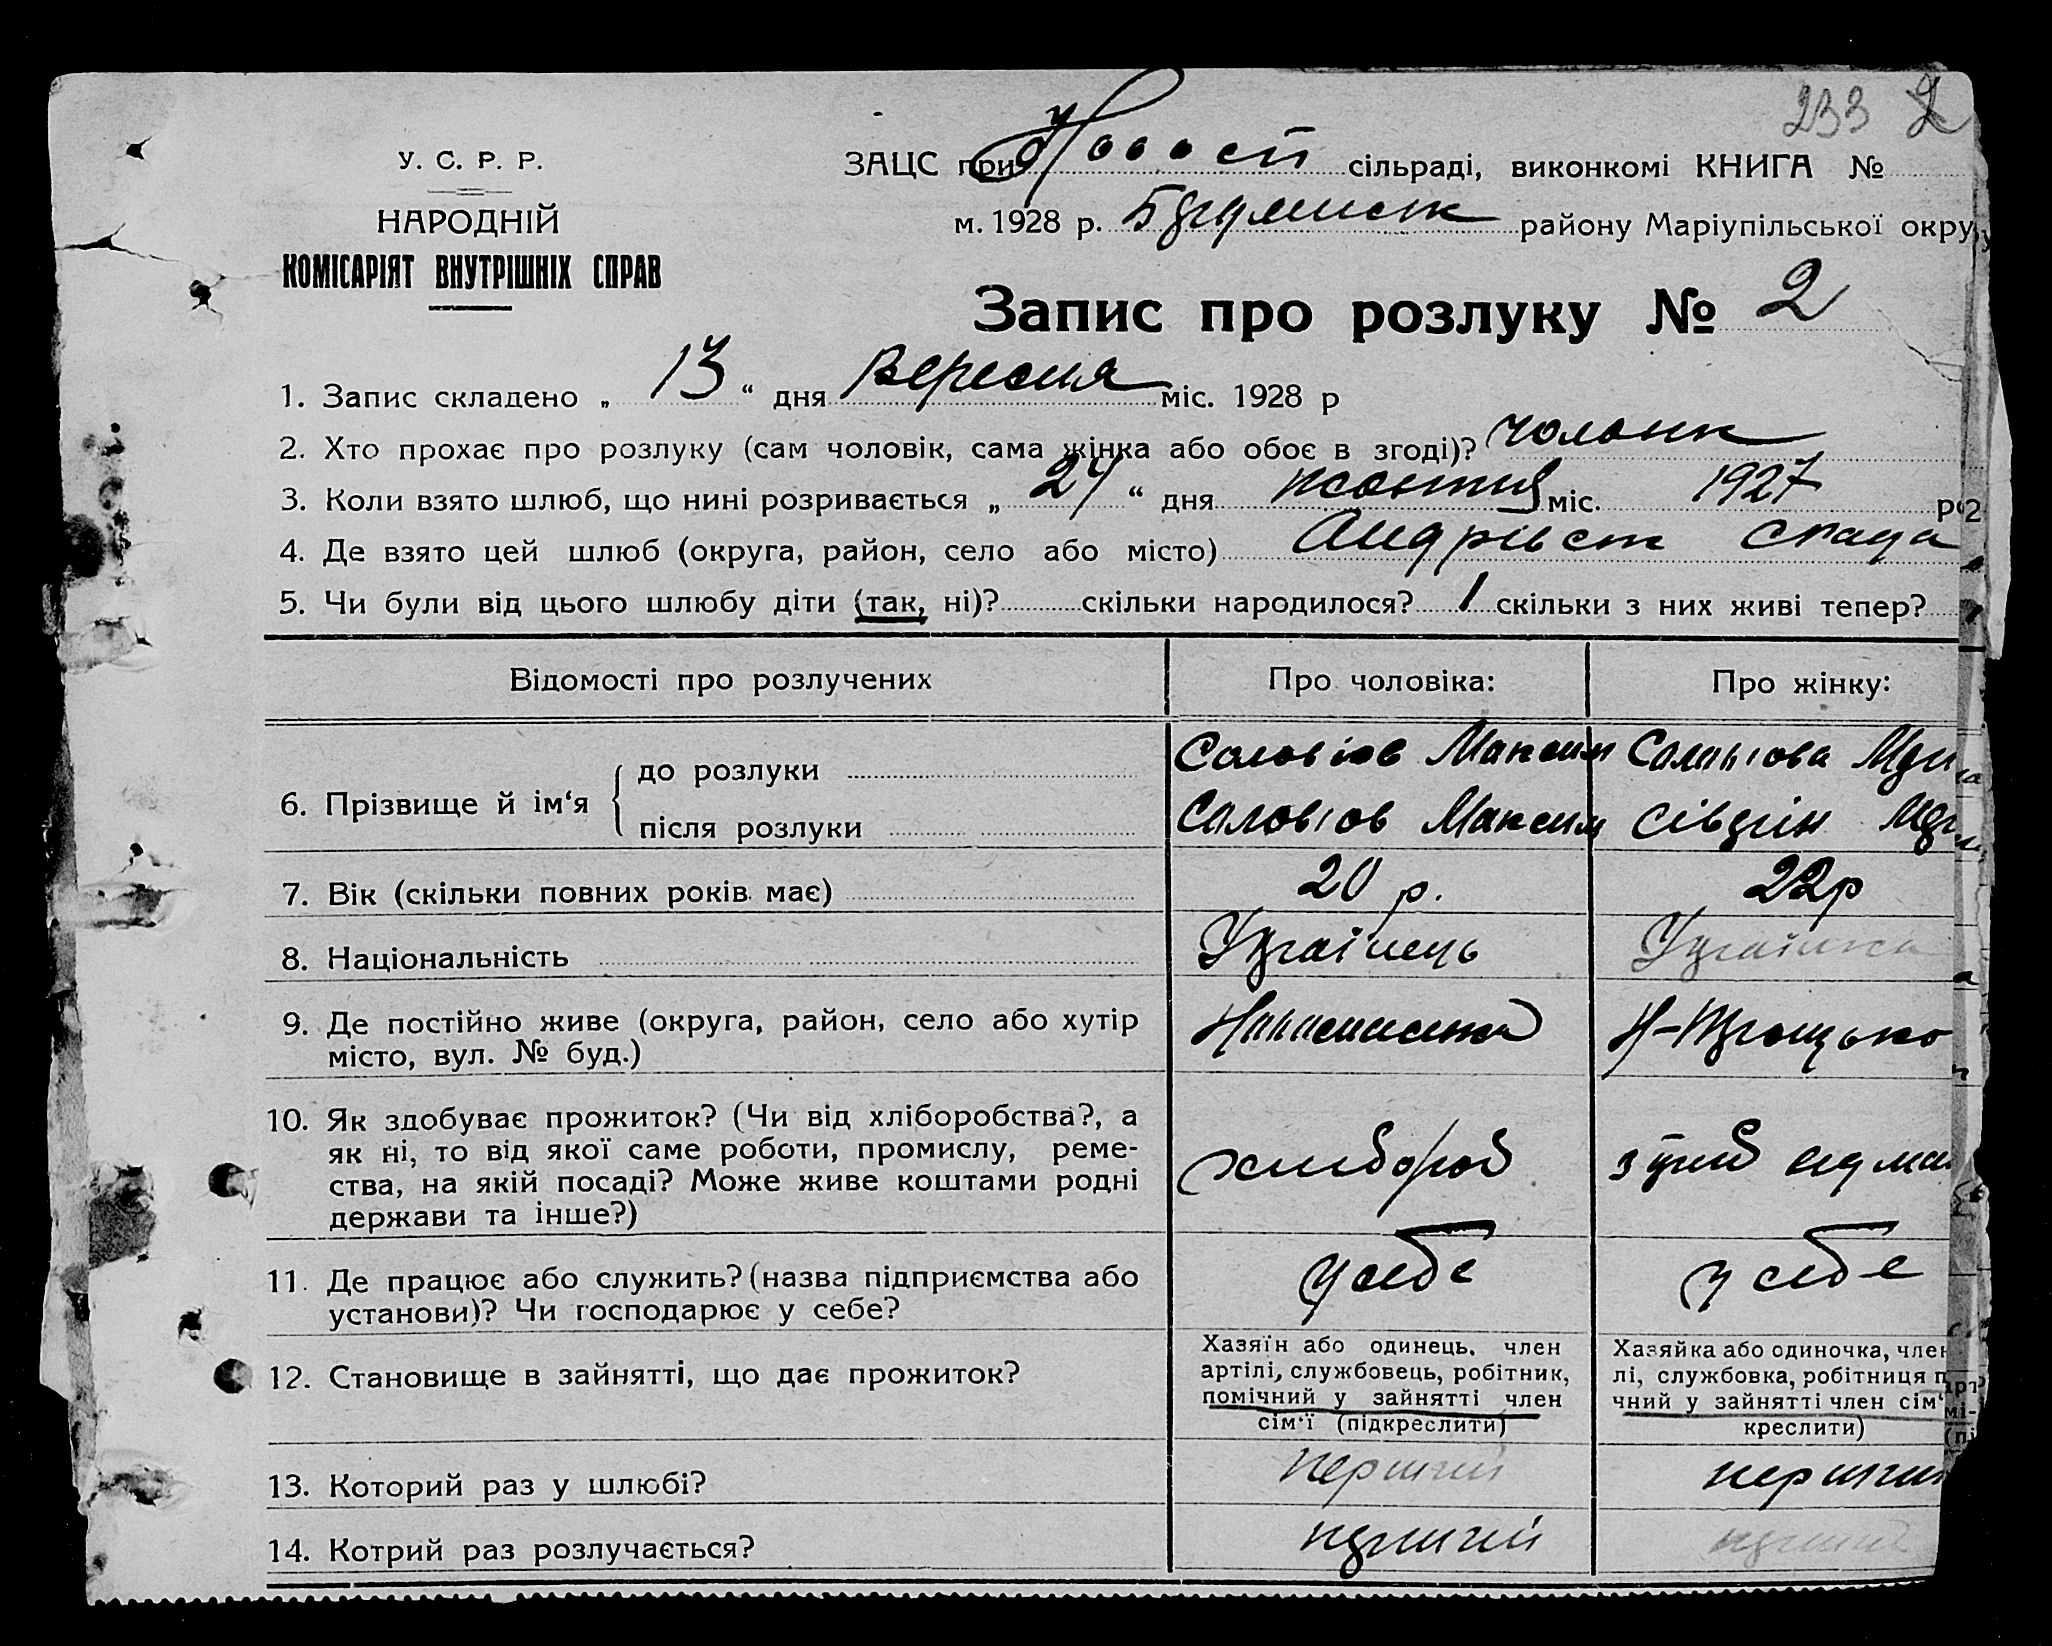 233 2
У. С. Р. Р.
НАРОДНІЙ
КОМІСАРІЯТ ВНУТРІШНІХ СПРАВ
ЗАЦС при сільраді, виконкомі КНИГА №
м. 1928 р. району Маріупільської окру
Запис про розлуку № 2
1. Запис складено „ 13 “ дня Вересня міс. 1928 р
2. Хто прохає про розлуку (сам чоловік, сама жінка або обоє в згоді)? чоловік
3. Коли взято шлюб, що нині розривається „ 24 “ дня жовтня міс. 1927 р
4. Де взято цей шлюб (округа, район, село або місто) Андрівськ срада
5. Чи були від цього шлюбу діти (так, ні)? скільки народилося? 1 скільки з них живі тепер?
Відомості про розлучених Про чоловіка: Про жінку:
6. Прізвище й ім‘я
до розлуки Соловіов Максим Соловіова
після розлуки Соловіов Максим
7. Вік (скільки повних років має) 20 р. 22р
8. Національність Українець Українка
9. Де постійно живе (округа, район, село або хутір
місто, вул. № буд.)
10. Як здобуває прожиток? (Чи від хліборобства?, а
як ні, то від якої саме роботи, промислу, реме-
ства, на якій посаді? Може живе коштами родні
держави та інше?)
хлибороб
11. Де працює або служить? (назва підприємства або
установи)? Чи господарює у себе?
у себе у себе
12. Становище в зайнятті, що дає прожиток?
Хазяїн або одинець, член
артілі, службовець, робітник,
помічний у зайнятті член
сім‘ї (підкреслити)
Хазяйка або одиночка, член
лі, службовка, робітниця п
чний у зайнятті член сім‘
креслити)
13. Которий раз у шлюбі? перший перший
14. Котрий раз розлучається?